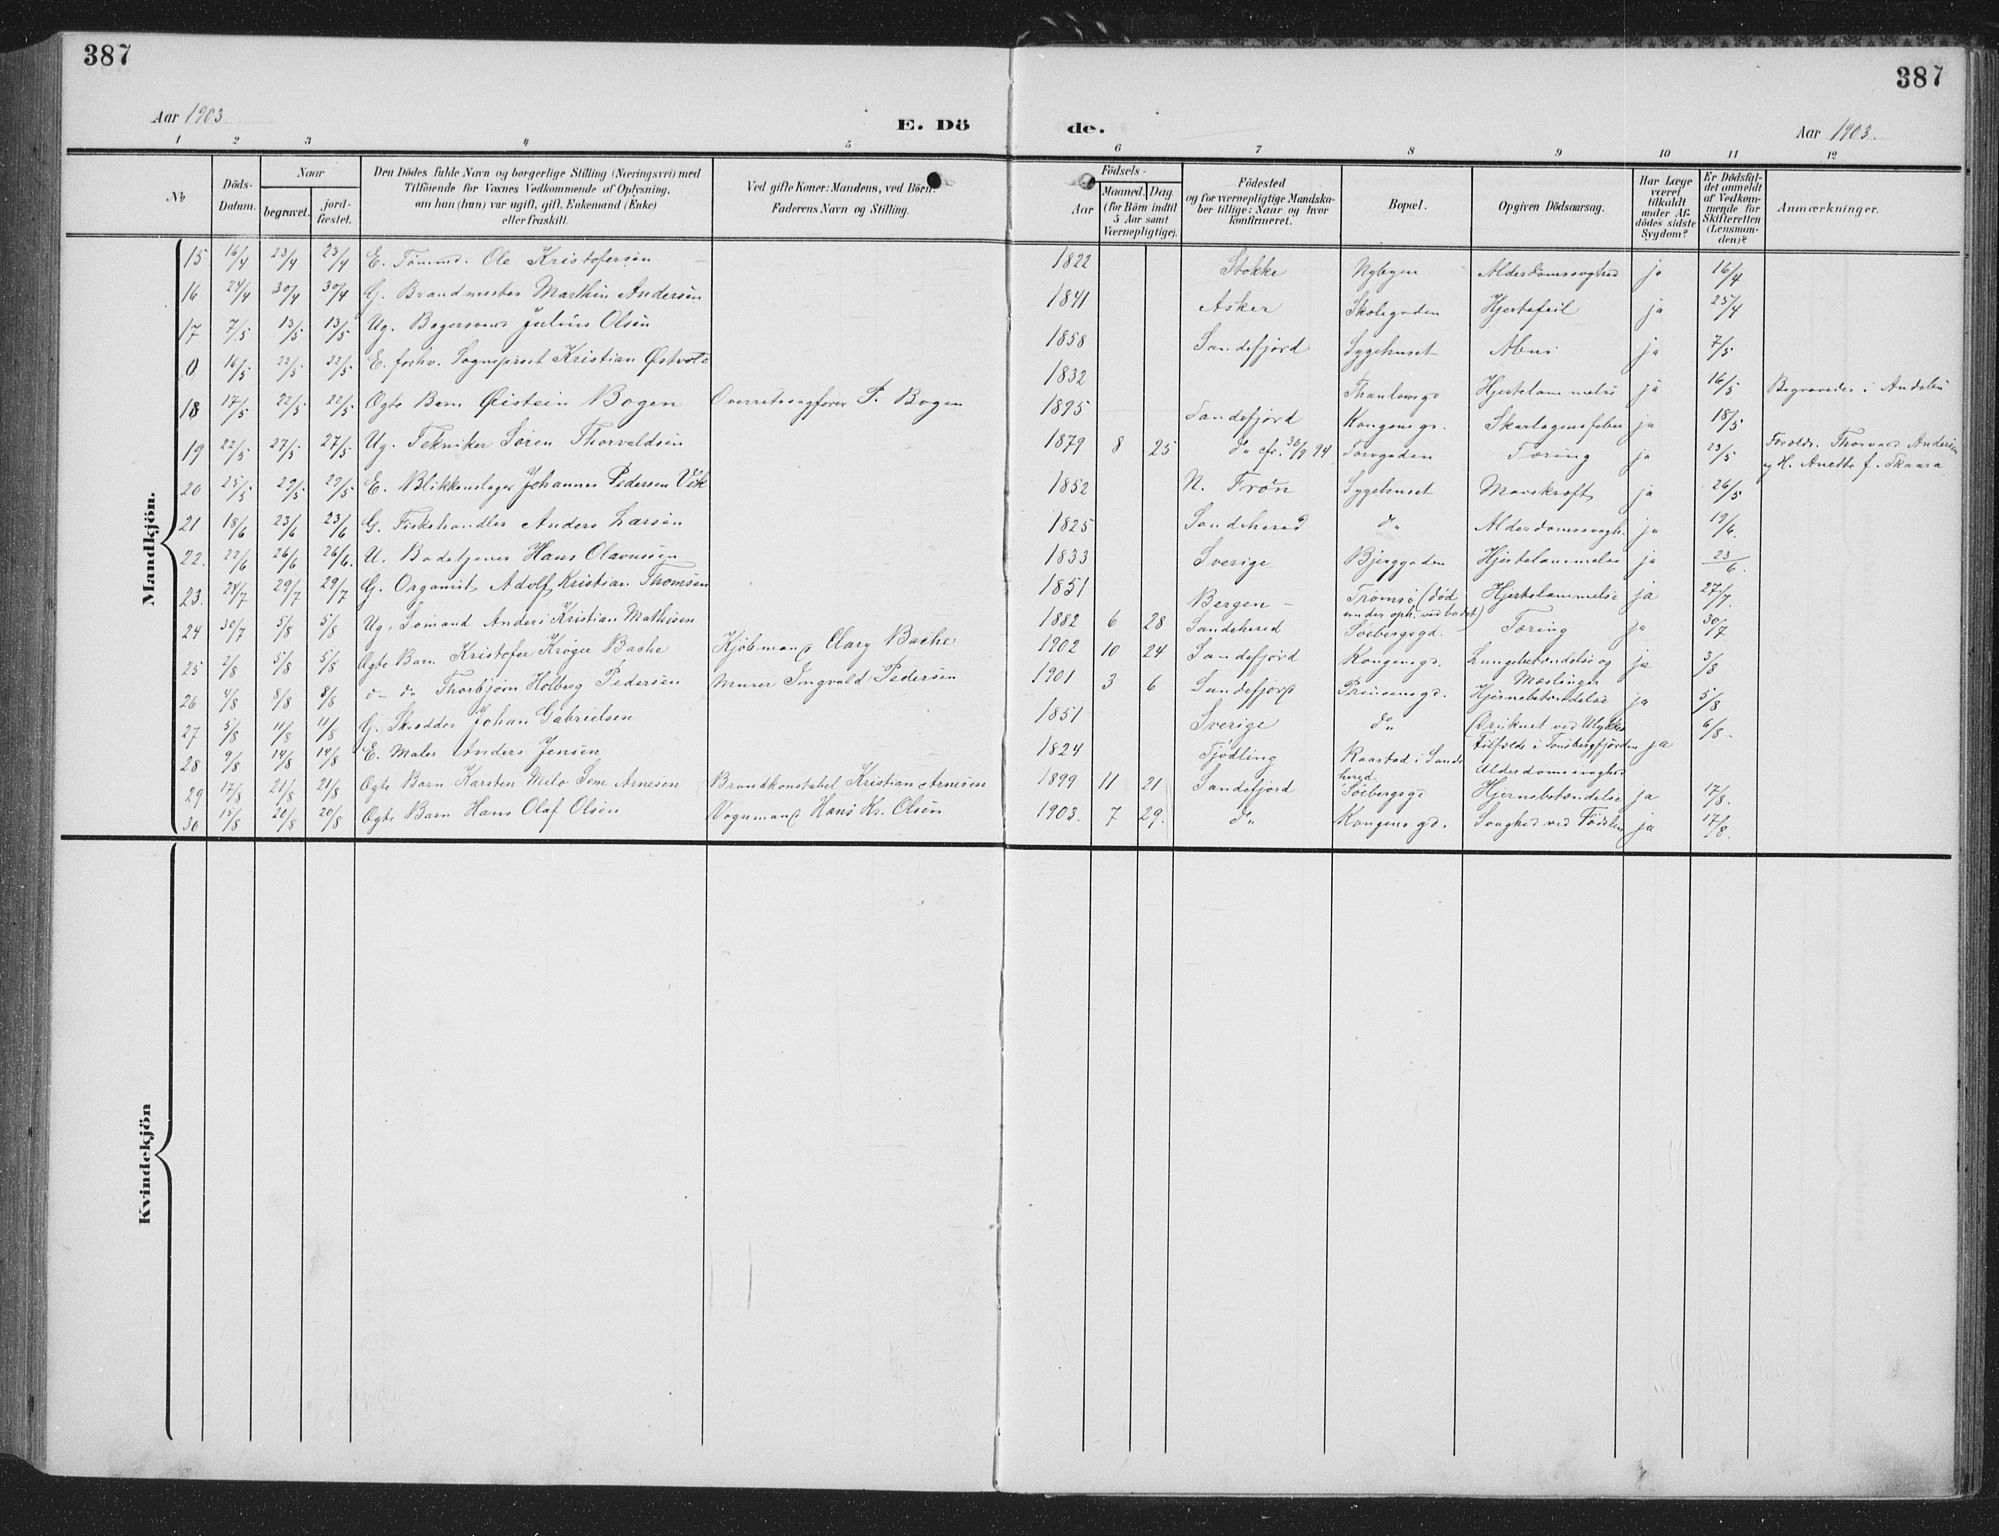 387
387
Aar 1903
E. Dö
de.
Aar 1903.
1 2 3 4 5 6 7 8 9 10 11 12
No
Döds-Datum.
Naar
begravet. jord-fæstet.
Den Dödes fulde Navn og borgerlige Stilling (Næringsvei) med
Tilföiende for Voxnes Vedkommende af Oplysning,
om han (hun) var ugift, gift, Enkemand (Enke)
eller fraskilt.
Ved gifte Koner: Mandens, ved Börn:
Faderens Navn og Stilling.
Födsels-
Aar
Maaned. Dag.
(for Börn indtil
5 Aar samt
Værnepligtige).
Födested
og for værnepligtige Mandska-
ber tillige: Naar og hvor
konfirmeret.
Bopæl.
Opgiven Dödsaarsag.
Har Læge
været
tilkaldt
under Af-
dödes sidste
Sygdom?
Er Dödsfal-
det anmeldt
af Vedkom-
mende for
Skifteretten
(Lensman-
den)?
Anmærkninger.
Mandkjön.
15 16/4 23/4 23/4 E. Tømmd. Ole Kristofersen 1822 Stokke Nybyen Alderdomssvaghed ja 16/4
16 24/4 30/4 30/4 G. Brandmester Marthin Andersen 1841 Asker Skolegaden Hjertefeil ja 25/4
17 7/5 13/5 13/5 Ug. Bagersvend Julius Olsen 1858 Sandefjord Sygehuset ja 7/5
0 16/5 22/5 22/5 E. forhv. Sogneprest Kristian Østvold 1832 Hjertelammelse ja 16/5 Begravedes i Andebu
18 17/5 22/5 22/5 Ægte Barn Øistein Bogen Overretssagfører P. Bogen 1895 Sandefjord Kongensgd. Skarlagensfeber ja 18/5
19 22/5 27/5 27/5 Ug. Tekniker Søren Thorvaldsen 1879 8 25 do cfr. 30/9 94 Torvgaden Tæring ja 23/5 Foreldr. Thorvald Andersen
og H. Anette f. Skaara
20 25/5 29/5 29/5 E. Blikkenslager Johannes Pedersen Vik 1852 N. Fron Sygehuset Mavekræft ja 26/5
21 18/6 23/6 23/6 G. Fiskehandler Anders Larsen 1825 Sandeherred do Alderdomssvagh. ja 19/6
22. 22/6 26/6 26/6. U. Badetjener Hans Olavussen 1833 Sverige Bjerggaden Hjertelammelse ja 23/6.
23. 24/7 29/7 29/7 G. Organist Adolf Kristian Thomsen 1851 Bergen - Tromsø (død
under oph. ved badet) Hjertelammelse ja 27/7.
24 30/7 5/8 5/8 Ug. Sømand Anders Kristian Mathisen 1882 6 28 Sandeherred Søebergsgd. Tæring ja 30/7
25 2/8 5/8 5/8 Ægte Barn Kristofer Krøger Bache Kjøbmand Clary Bache 1902 10 24 Sandefjord Kongensgd. Lungebetændelse og
Mæslinger ja 3/8
26 4/8 8/8 8/8 do do Thorbjørn Holberg Pedersen Murer Ingvald Pedersen 1901 3 6 Sandefjord Preusensgd. Hjernebetændelse ja 5/8
27 5/8 11/8 11/8 G. Skrædder Johan Gabrielsen 1851 Sverige do (Druknet ved Ulykkes-
tilfælde i Tønsbergfjorden 6/8.
28 9/8 14/8 14/8 E. Maler Anders Jensen 1824 Tjødling Raastad i Sande-
herred. Alderdomssvaghed ja
29 17/8 21/8 21/8 Ægte Barn Karsten Melo Sem Arnesen Brandkonstabel Kristian Arnesen 1899 11 21 Sandefjord Søebergsgd Hjernebetændelse ja 17/8.
30 15/8 20/8 20/8 Ægte Barn Hans Olaf Olsen Vognmand Hans Kr. Olsen 1903. 7 29. do Kongensgd. Svaghed ved Fødslen ja 17/8.
Kvindekjön